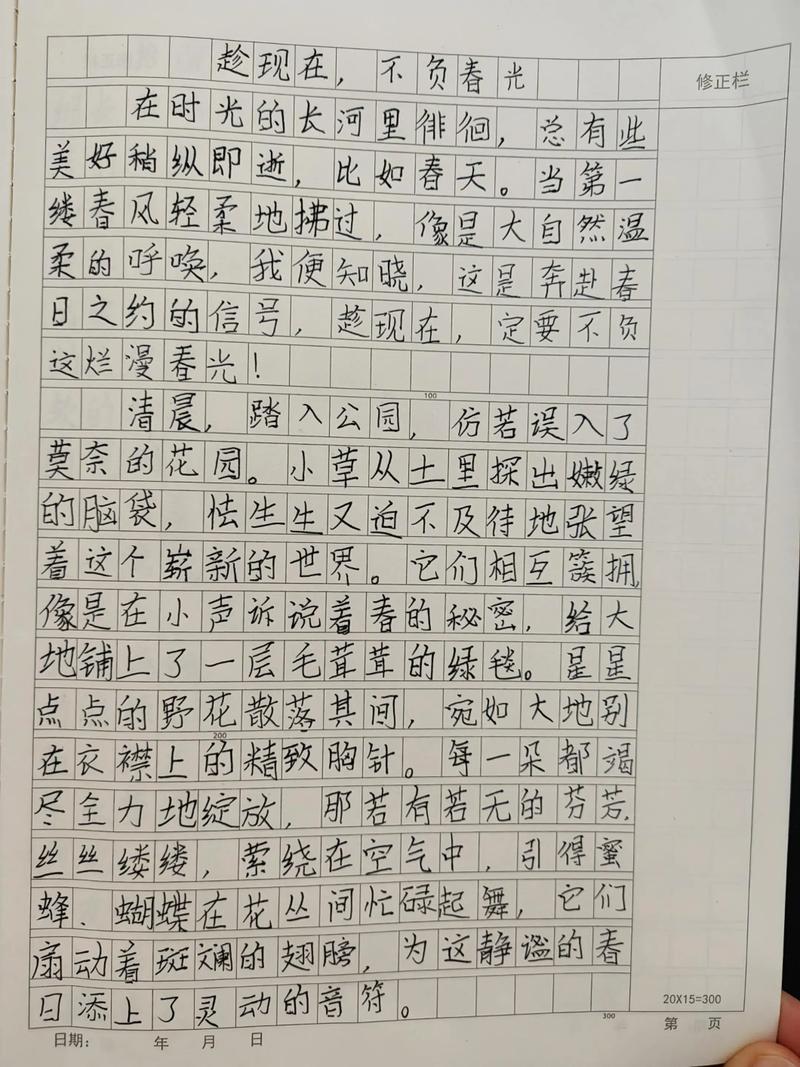 趁现在，不负春光
修正栏
在时光的长河里徘徊，总有些
美好稍纵即逝，比如春天。当第一
缕春风轻柔地拂过，像是大自然温
柔的呼唤，我便知晓，这是奔赴春
日之约的信号，趁现在，定要不负
这烂漫春光！
100
清晨，踏入公园，仿若误入了
莫奈的花园。小草从土里探出嫩绿
的脑袋，怯生生又迫不及待地张望
着这个崭新的世界。它们相互簇拥，
像是在小声诉说着春的秘密，给大
地铺上了一层毛茸茸的绿毯。星星
点点的野花散落其间，宛如大地别
200
在衣襟上的精致胸针。每一朵都竭
尽全力地绽放，那若有若无的芬芳，
丝丝缕缕，萦绕在空气中，引得蜜
蜂、蝴蝶在花丛间忙碌起舞，它们
扇动着斑斓的翅膀，为这静谧的春
日添上了灵动的音符。
20X15=300
300
日期： 年 月 日
第 页